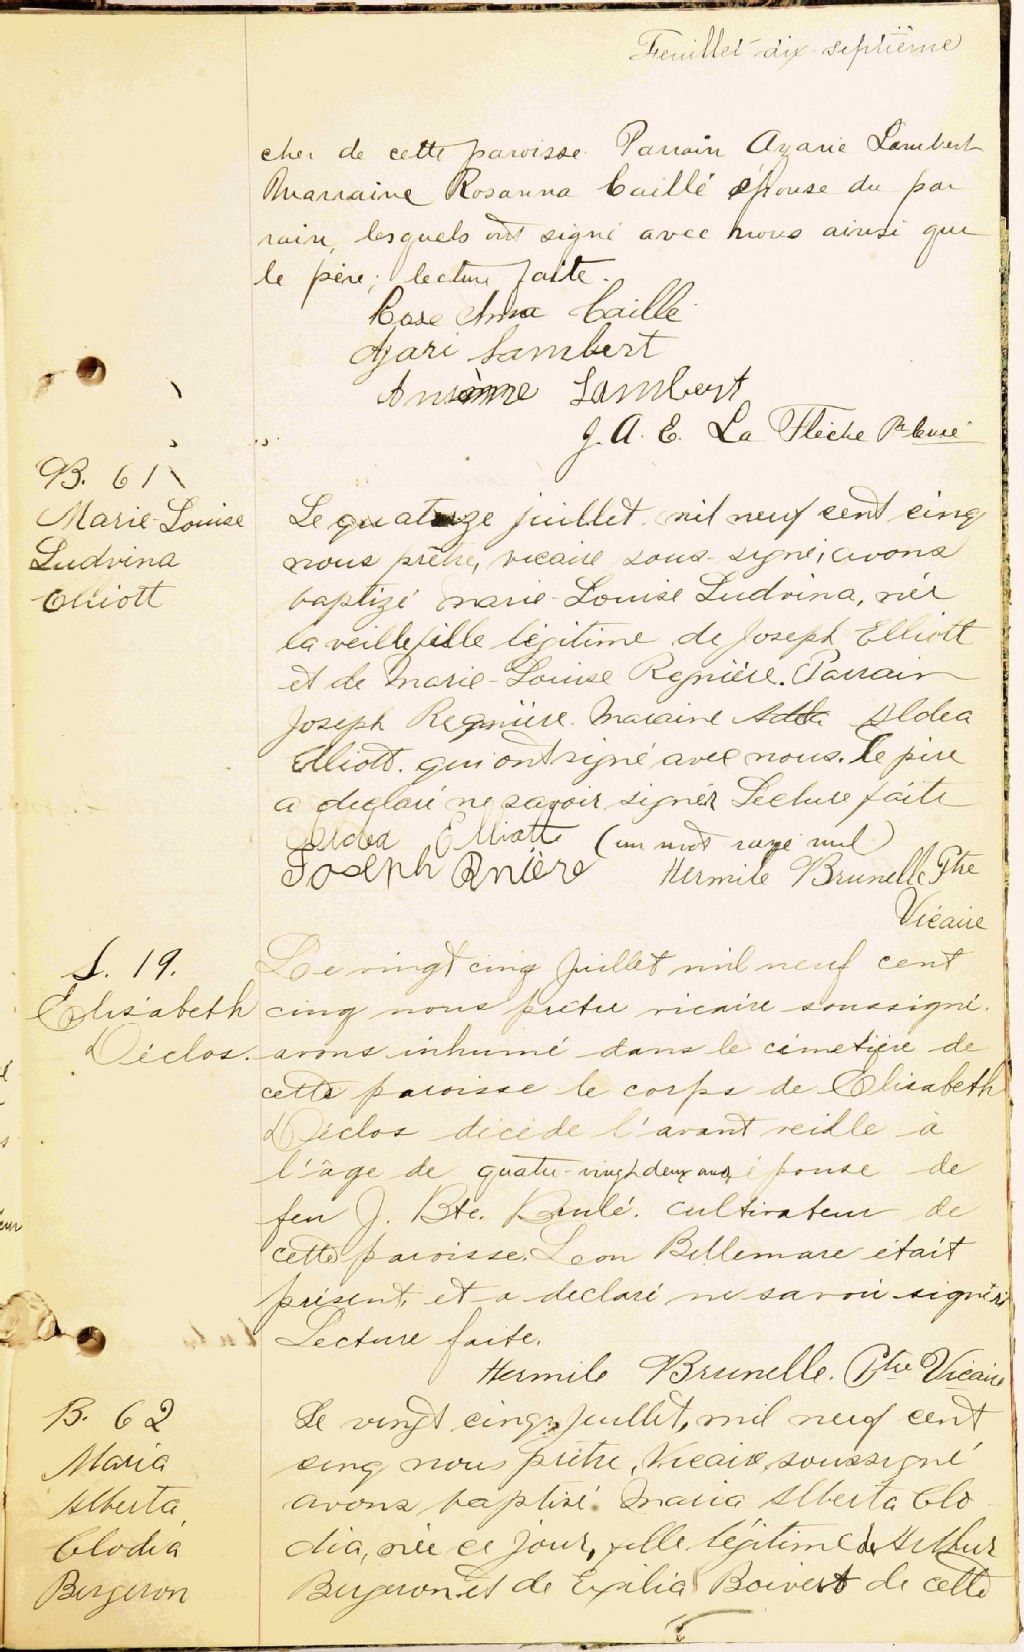 Feuillet dix-septième
cher de cette paroisse. Parrain Azarie Lambert
Marraine Rosanna Caillé épouse du par
rain, lesquels ont signé avec nous ainsi que
le père; lecture faite.
Rose Anna Caille
Azari Lambert
Lambert
J. A. E. La Flèche Ptre Curé
B. 61
Marie-Louise
Ludvina
Elliott
Le quatorze juillet mil neuf cent cinq
nous prêtre, vicaire sous-signé, avons
baptizé Marie-Louise Ludvina, née
la veille fille légitime de Joseph Elliott
et de Marie-Louise Regnière. Parrain
Joseph Regnière. Maraine Aldea
Elliott. qui ont signé avec nous. Le père
a declaré ne savoir signer Lecture faite
Aldea Elliotte (un mot rayé nul)
Joseph Rnière Hermile Brunelle Ptre
Vicaire
S. 19.
Elisabeth
Déclos.
Le vingt cinq Juillet mil neuf cent
cinq nous prêtre vicaire soussigné.
avons inhumé dans le cimetière de
cette paroisse le corps de Elisabeth
Déclos décédé l'avant veille à
l'âge de quatre-vingt deux ans, épouse de
feu J. Bte. Brulé. cultivateur de
cette paroisse. Leon Bellemare était
présent, et a declaré ne savoir signer
Lecture faite.
Hermile Brunelle. Ptre Vicaire
B. 62
Maria
Alberta
Clodia
Bergeron
Le vingt cinq juillet, mil neuf cent
cinq nous prêtre, Vicaire, soussigné
avons baptisé. Maria Alberta Clo
dia, née ce jour, fille légitime de Arthur
Bergeron et de Exilia Boivert de cette